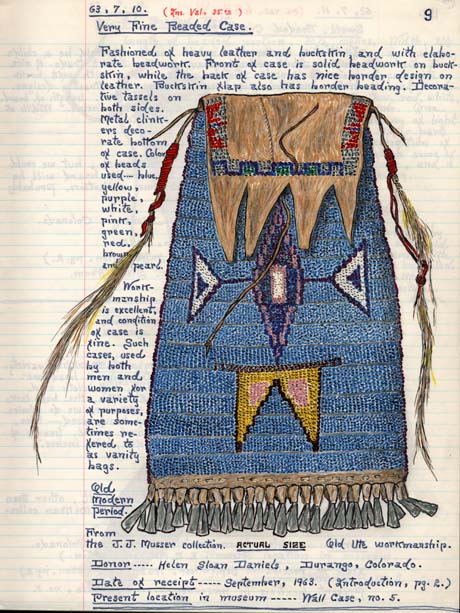 63, 7, 10. (Ins. Val. 35⁰⁰) 9
Very Fine Beaded Case.
Fashioned of heavy leather and buckskin, and with elabo-
rate beadwork. Front of case is solid beadwork on buck-
skin, while the back of case has nice border design on
leather. Buckskin flap also has border beading. Decora-
tive tassels on
both sides.
Metal clink-
ers deco-
rate bottom
of case. Color
of beads
used---- blue,
yellow,
purple,
white,
pink,
green,
red,
brown
and pearl.
Work-
manship
is excellent,
and condition
of case is
fine. Such
cases, used
by both
men and
women for
a variety
of purposes,
are some-
times re-
ferred to
as vanity
bags.
Old
Modern
period.
From
the J.J. Musser collection. ACTUAL SIZE Old Ute workmanship.
Donor ----- Helen Sloan Daniels, Durango, Colorado.
Date of receipt ----- September, 1963. (Introduction, pg. 2.)
Present location in museum ----- Wall Case, no. 5.